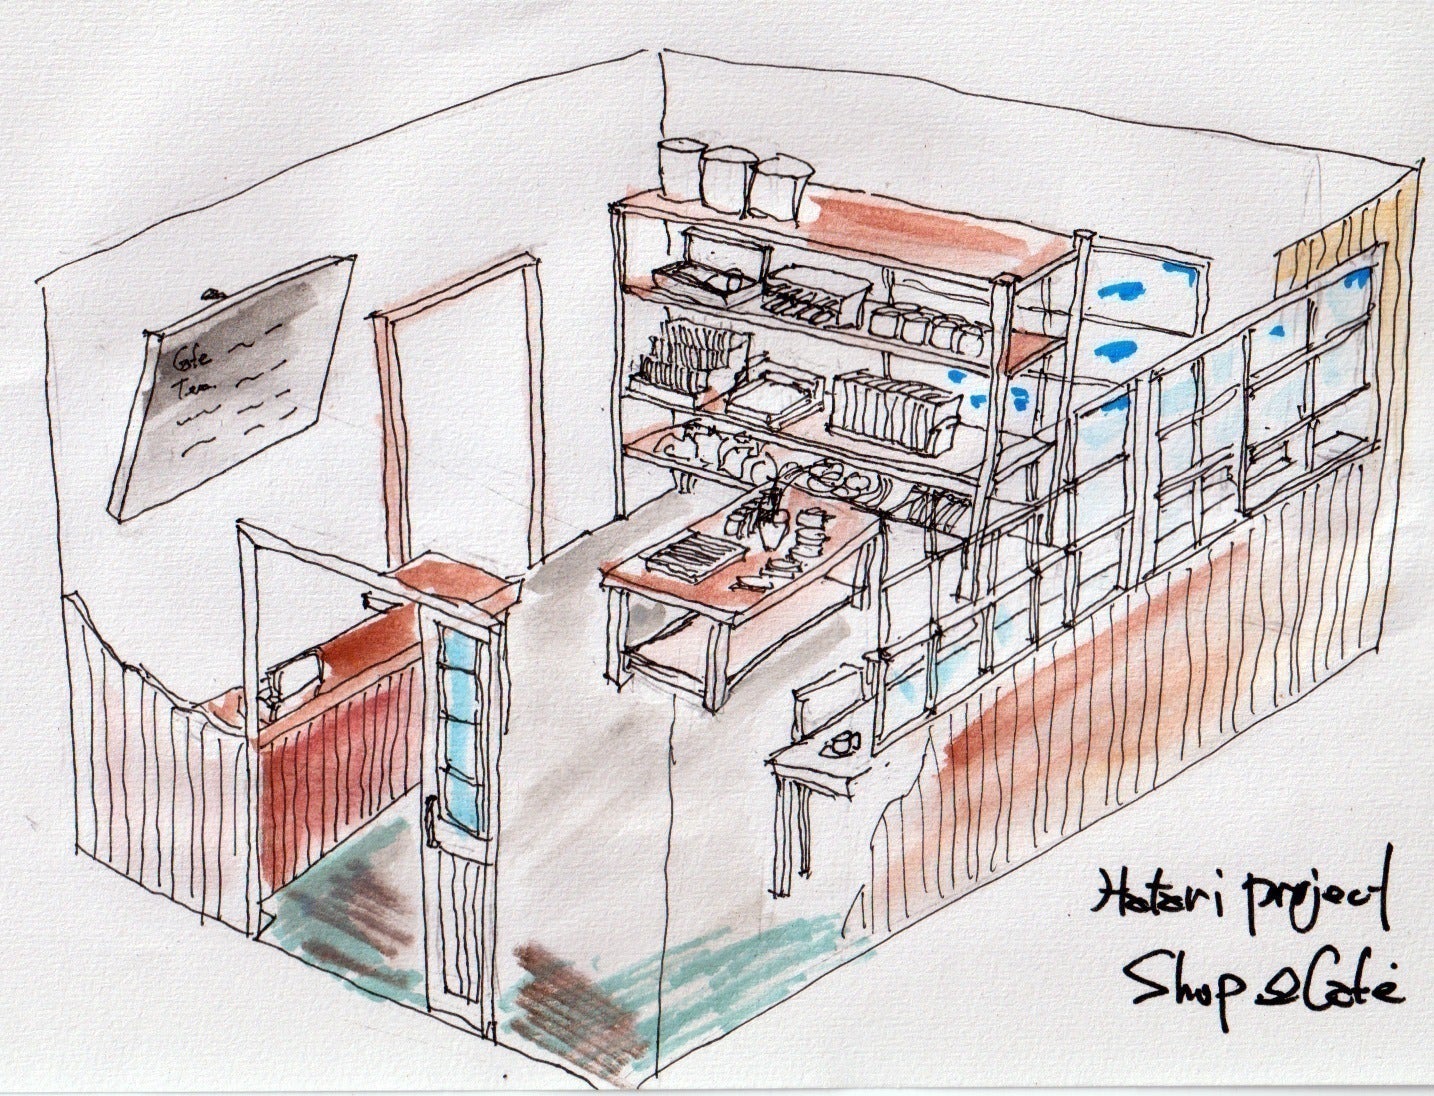 Cafe
Tea
Hatari project
Shop & Café